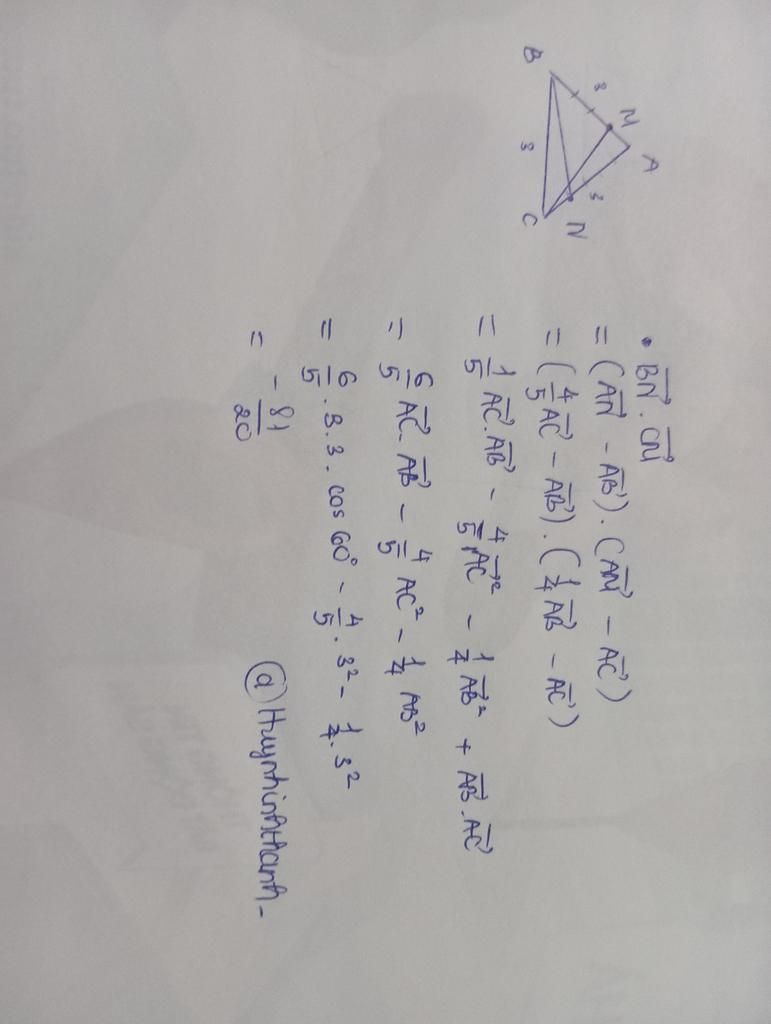 A
M
3
3
N
B
3
C
• $\overrightarrow{BN} . \overrightarrow{CM}$
= $(\overrightarrow{AN} - \overrightarrow{AB}) . (\overrightarrow{AM} - \overrightarrow{AC})$
= $(\frac{4}{5} \overrightarrow{AC} - \overrightarrow{AB}) . (\frac{1}{4} \overrightarrow{AB} - \overrightarrow{AC})$
= $\frac{1}{5} \overrightarrow{AC} . \overrightarrow{AB} - \frac{4}{5} \overrightarrow{AC}^2 - \frac{1}{4} \overrightarrow{AB}^2 + \overrightarrow{AB} . \overrightarrow{AC}$
= $\frac{6}{5} \overrightarrow{AC} . \overrightarrow{AB} - \frac{4}{5} AC^2 - \frac{1}{4} AB^2$
= $\frac{6}{5} . 3 . 3 . \cos 60° - \frac{4}{5} . 3^2 - \frac{1}{4} . 3^2$
= $- \frac{81}{20}$
@Huynhinhthanh_